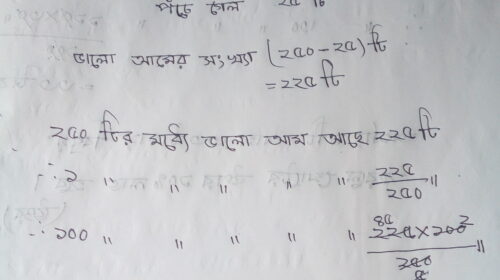 পচে গেল ২৫ টি
ভালো আমের সংখ্যা (২৫০-২৫) টি
= ২২৫ টি
২৫০ টির মধ্যে ভালো আম আছে ২২৫ টি
∴ ১ " " " " " ২২৫/২৫০ "
৪৫ ২
∴ ১০০ " " " " " ২২৫×১০০/২৫০ "
৫